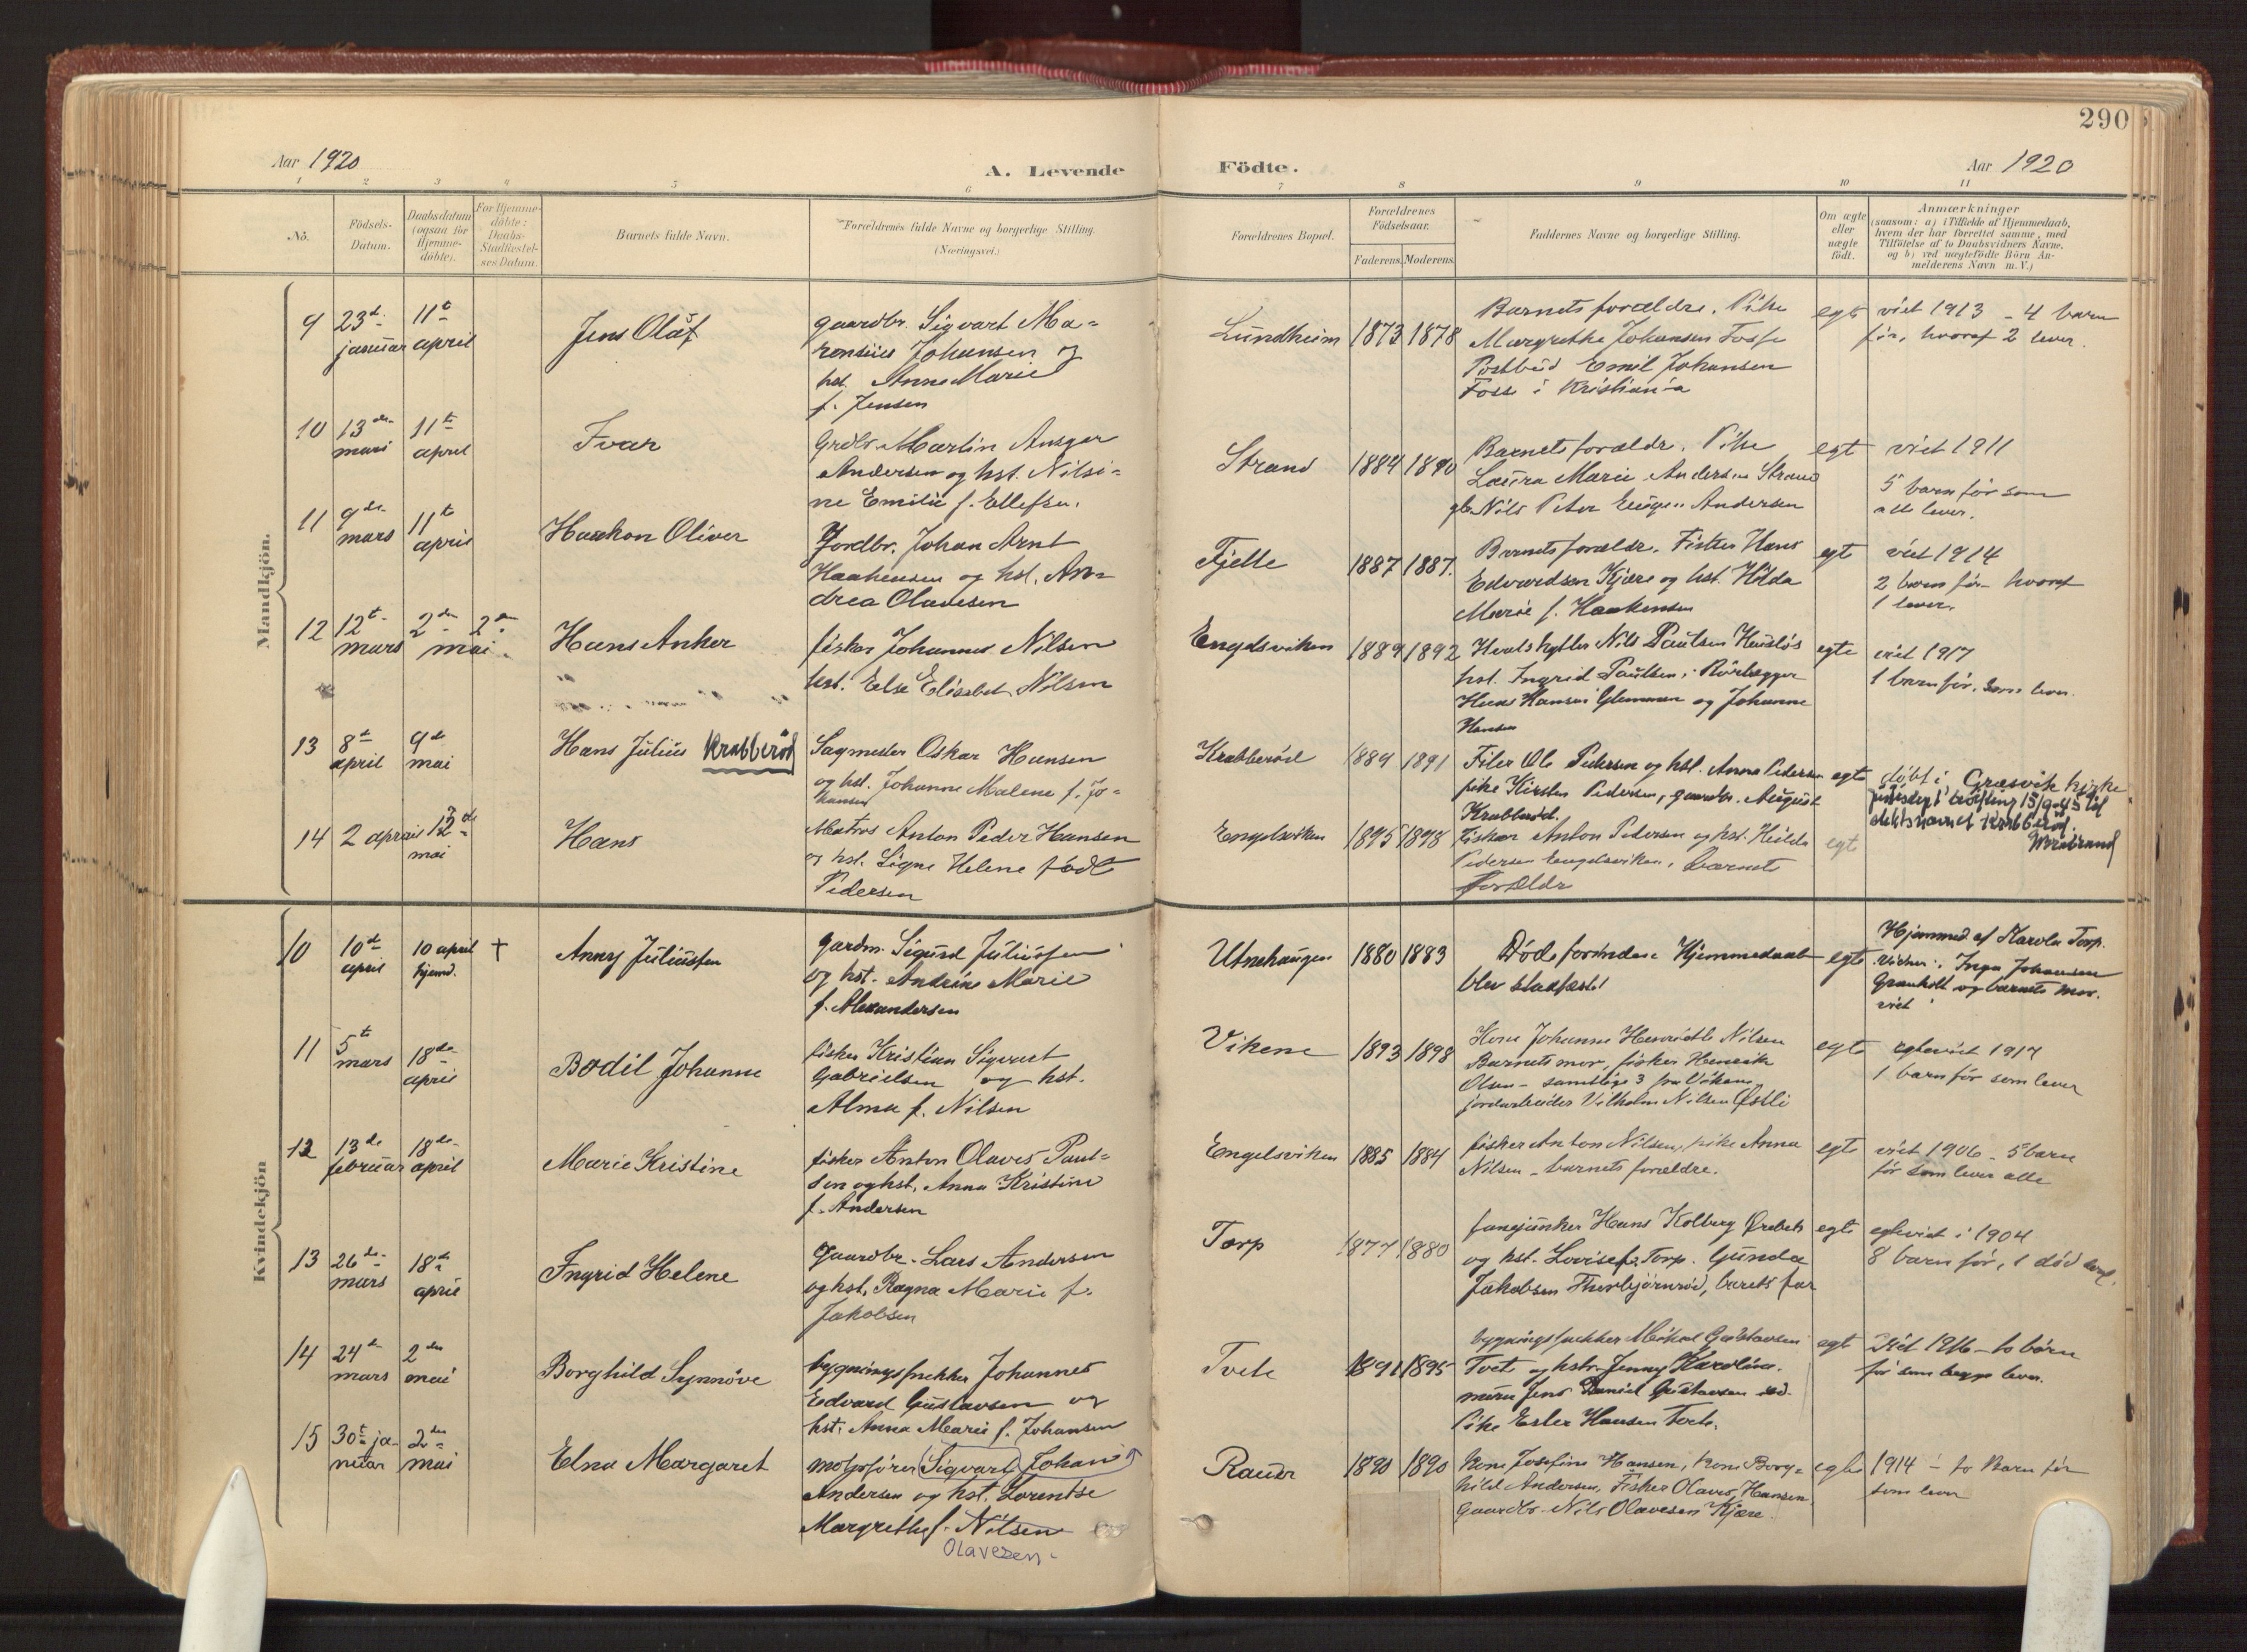 290
Aar 1920
A. Levende
Födte.
Aar 1920
1 2 3 4 5 6 7 8 9 10 11
No.
Födsels-
Datum.
Daabsdatum
(ogsaa for
Hjemme-
döbte).
For Hjemme-
döbte:
Daabs-
Stadfæstel-
ses Datum.
Barnets fulde Navn.
Forældrenes fulde Navne og borgerlige Stilling.
(Næringsvei.)
Forældrenes Bopæl.
Forældrenes
Födselsaar.
Faderens. Moderens.
Faddernes Navne og borgerlige Stilling.
Om ægte
eller
uægte
födt.
Anmærkninger
(saasom: a) i Tilfælde af Hjemmedaab,
hvem der har forrettet samme, med
Tilföielse af to Daabsvidners Navne,
og b) ved uægtefödte Börn An-
melderens Navn m. V.)
Mandkjön.
9
23de
januar
11te
april
Jens Olaf
gaardbr. Sigvart Ma-
rensius Johansen og
hst. Anne Marie
f. Jensen
Lundheim
1873 1878
Barnets forældre. Pike
Margrethe Johansen Fosse
Postbud Emil Johansen
Fosse i Kristiania
egte
viet 1913 - 4 barn
før, hvoraf 2 lever.
10
13de
mars
11te
april
Ivar
Grdbr. Martin Ansgar
Andersen og hst. Nilsi-
ne Emilie f. Ellefsen.
Strand
1884 1890
Barnets forældre. Pike
Laura Marie Andersen Strand
gbr. Nils Peter Eugen Andersen
egt
viet 1911
5 barn før som
alle lever.
11
9de
mars
11te
april
Haakon Oliver
Jordbr. Johan Arnt
Haakensen og hst. An-
drea Olavesen
Fjelle
1887 1887.
Barnets forældre. Fisker Hans
Edvardsen Kjære og hst. Hilda
Marie f. Haakensen
egte
viet 1914
2 barn før hvoraf
1 lever.
12
12te
mars
2den
mai
2den
Hans Anker
fisker Johannes Nilsen
hst. Else Elisabet Nilsen
Engelsviken
1889 1892
Hvalskytter Nils Paulsen
hst. Ingrid Paulsen, Rørlægger
Hans Hansen Glemmen og Johanne
Hansen
egte
viet 1917
1 barn før, som lever.
13
8de
april
9de
mai
Hans Julius Krabberød
Sagmester Oskar Hansen
og hst. Johanne Malene f. Jo-
hansen
Krabberød
1889 1891
Filer Ole Pedersen og hst. Anna Pedersen
pike Kirsten Pedersen, gaardbr. August
Krabberød.
egte
døbt i Græsvik kirke
15/9-45 til
slektsnavnet Krabberød.
14
2 april
13de
mai
Hans
Matros Anton Peder Hansen
og hst. Signe Helene født
Pedersen
Engelsviken
1895 1898
Fisker Anton Pedersen og hst. Hilda
Pedersen Engelsviken, barnets
forældre
egte
Kvindekjön
10
10de
april
10 april
hjemd.
+
Anny Juliussen
gardm. Sigurd Juliussen
og hst. Andrine Marie
f. Alexandersen
Utnehaugen
1880 1883
Død forinden Hjemmedaab
blev stadfæstet
egte
Hjemmed. af Karola Torp.
Vidner: Inga Johansen
Granholt og barnets mor.
viet
11
5te
mars
18de
april
Bodil Johanne
fisker Kristian Sigvart
Gabrielsen og hst.
Alma f. Nilsen
Vikene
1893 1898
Kone Johanne Henriette Nilsen
Barnets mor, fisker Henrik
Olsen - samtlige 3 fra Vikene
jordarbeider Vilhelm Nilsen Østli
egte
egteviet 1917
1 barn før som lever
12
13de
februar
18de
april
Marie Kristine
fisker Anton Olaves Paul-
sen og hst. Anna Kristine
f. Andersen
Engelsviken
1885 1884
fisker Anton Nilsen, pike Anna
Nilsen - barnets forældre.
egte
viet 1906 - 5 barn
før som lever alle
13
26de
mars
18de
april
Ingrid Helene
Gaardbr. Lars Andersen
og hst. Ragna Marie f.
Jakobsen
Torp
1877 1880
Hans Kolberg
og hst. Lovise f. Torp. Gunda
Jakobsen Thorbjørnrød, barnets far
egte
egteviet i 1904
8 barn før, 1 død
14
24de
mars
2den
mai
Borghild Synnöve
bygningssnekker Johannes
Edvard Gustavsen og
hst. Anna Marie f. Johansen
Tvete
1891 1895
bygningssnekker Mikal Gustavsen
Tvet og hstr. Jenny Karoline.
murer Jens Daniel Gustavsen
Pike Ester Hansen Tvete.
egt
Viet 1916 - to børn
før som begge lever.
15
30te ja-
nuar
2den
mai
Elna Margaret
motorfører Sigvart Johan
Andersen og hst. Lorentse
Margrethe f. Nilsen
Olavesen
Rauer
1890 1890
Kone Josefine Hansen, Kone Borg-
hild Andersen, Fisker Olaves Hansen,
Gaardbr. Nils Olavesen Kjære.
egte
1914 - to Barn før
som lever